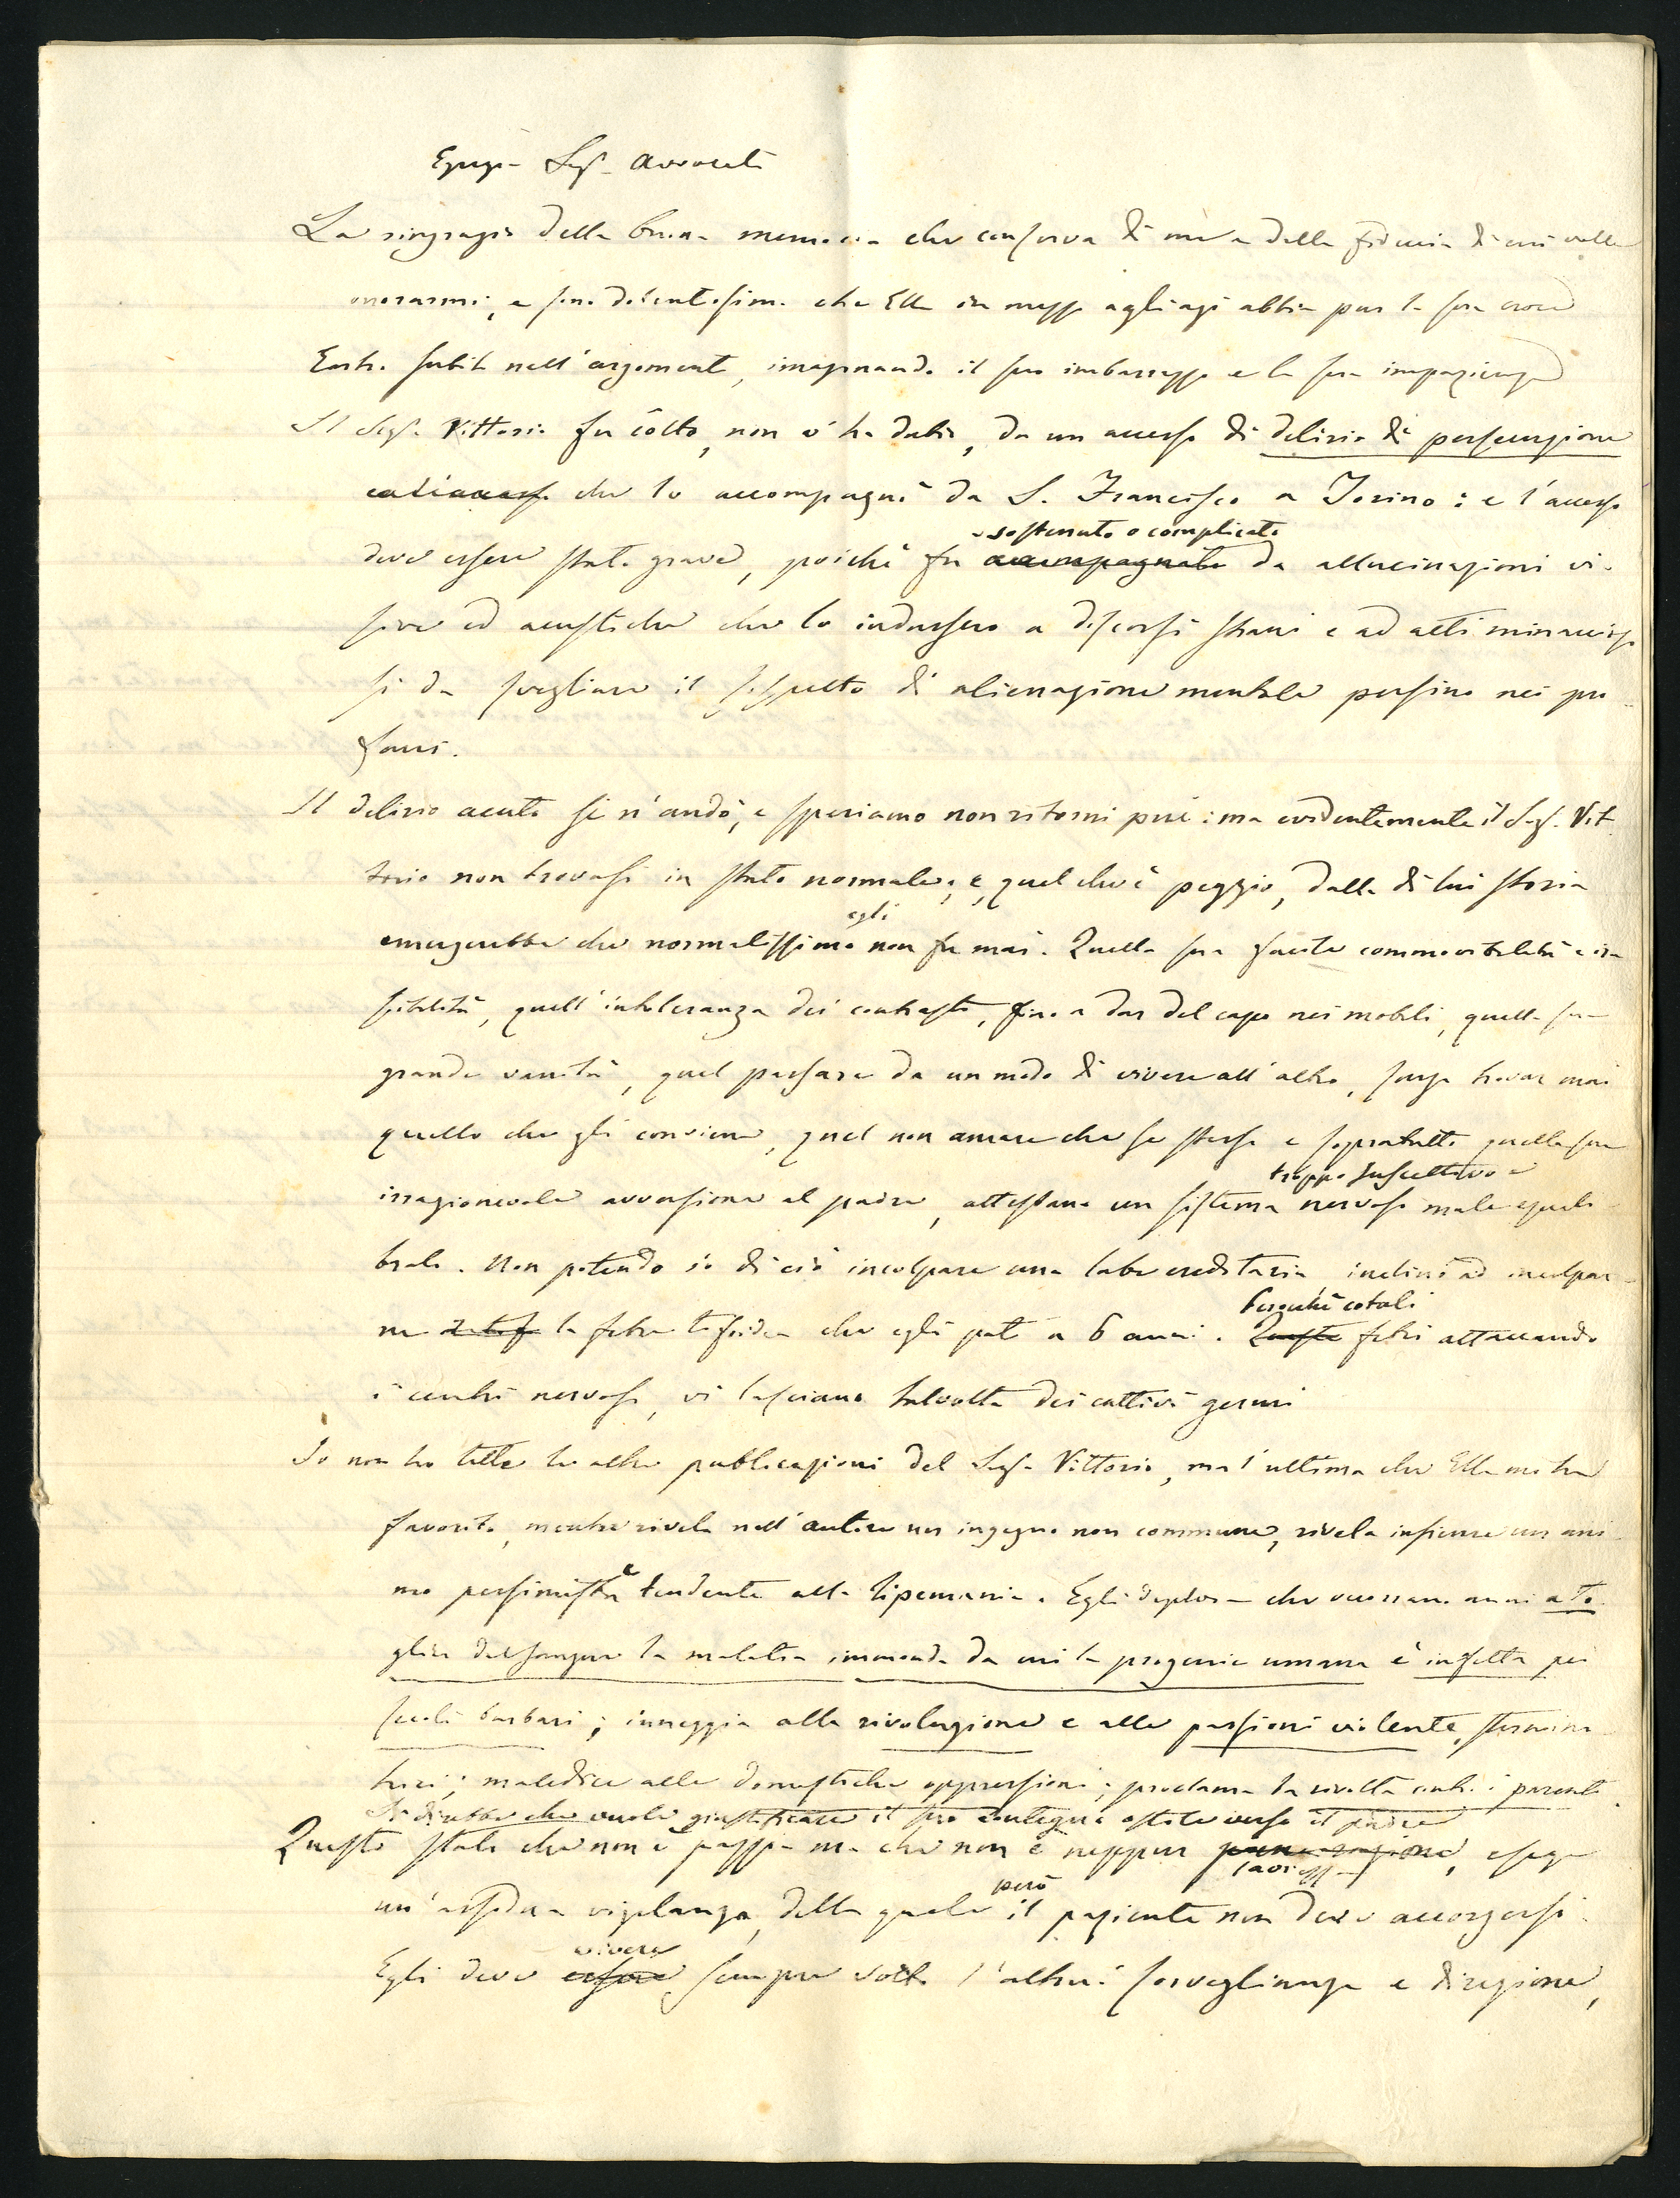 Egregio Sig. Avvocato
La ringrazio della buona memoria che conserva di me e della fiducia di cui volle
onorarmi, e sono dolentissimo che Ella in mezzo agli agi abbia pur la sua croce
Entro subito nell'argomento, imaginando il suo imbarazzo e la sua impazienza
Il Sigr. Vittorio fu cólto, non v'ha dubio, da un accesso di delirio di persecuzione
che lo accompagnò da S. Francisco a Torino: e l'accesso
sostenuto o complicato
deve essere stato grave, poichè fu accompagnato da allucinazioni vi-
sive ed acustiche che lo indussero a discorsi strani e ad atti minaccio-
si da svegliare il sospetto di alienazione mentale persino nei pro-
fani.
Il delirio acuto se n'andò, e speriamo non ritorni più: ma evidentemente il Sigr. Vit-
torio non trovasi in stato normale; e, quel che è peggio, dalla di lui storia
egli
emergerebbe che normalissimo non fu mai. Quella sua facile commovibilità e ira-
scibilità, quell'intoleranza dei contrasti, fino a dar del capo nei mobili, quella sua
grande vanità, quel passare da un modo di vivere all'altro, senza trovar mai
quello che gli conviene, quel non amare che se stesso e sopratutto quella sua
troppo suscettivo e
irragionevole avversione al padre, attestano un sistema nervoso male equili-
brato. Non potendo io di ciò incolpare una labe ereditaria inclino ad incolpar-
Perochè cotali
ne la febre tifoidea che egli patì a 6 anni. Queste febri attaccando
i centri nervosi, vi lasciano talvolta dei cattivi germi
Io non ho lette le altre publicazioni del Sigr. Vittorio, ma l'ultima che Ella mi ha
favorito, mentre rivela nell'autore un ingegno non commune, rivela insieme un ani-
mo pessimista e tendente alla lipemania. Egli deplora che occorrano anni a to-
glier dal sangue la malatia immonda da cui la progenie umana è infetta pei
secoli barbari; inneggia alla rivoluzione e alle passioni violente, stermina-
trici; maledice alle domestiche oppressioni; proclama la rivolta contro i parenti.
Si direbbe che vuole giustificare il suo contegno ostile verso il padre
Questo stato che non è pazzia ma che non è neppur , esige
però
un'assidua vigilanza, della quale il paziente non deve accorgersi.
vivere
Egli deve essere sempre sotto l'altrui sorveglianza e direzione,